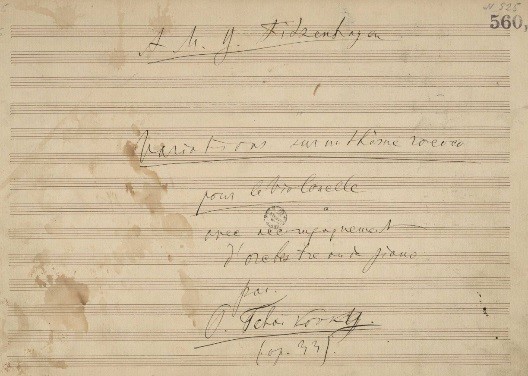 N 525
560,
A M. G. Fitzenhagen
Variations sur un thème rococo
pour le Violoncelle
avec accompagnement
d'orchestre ou de piano
par
P. Tchaikovsky.
(op. 33).